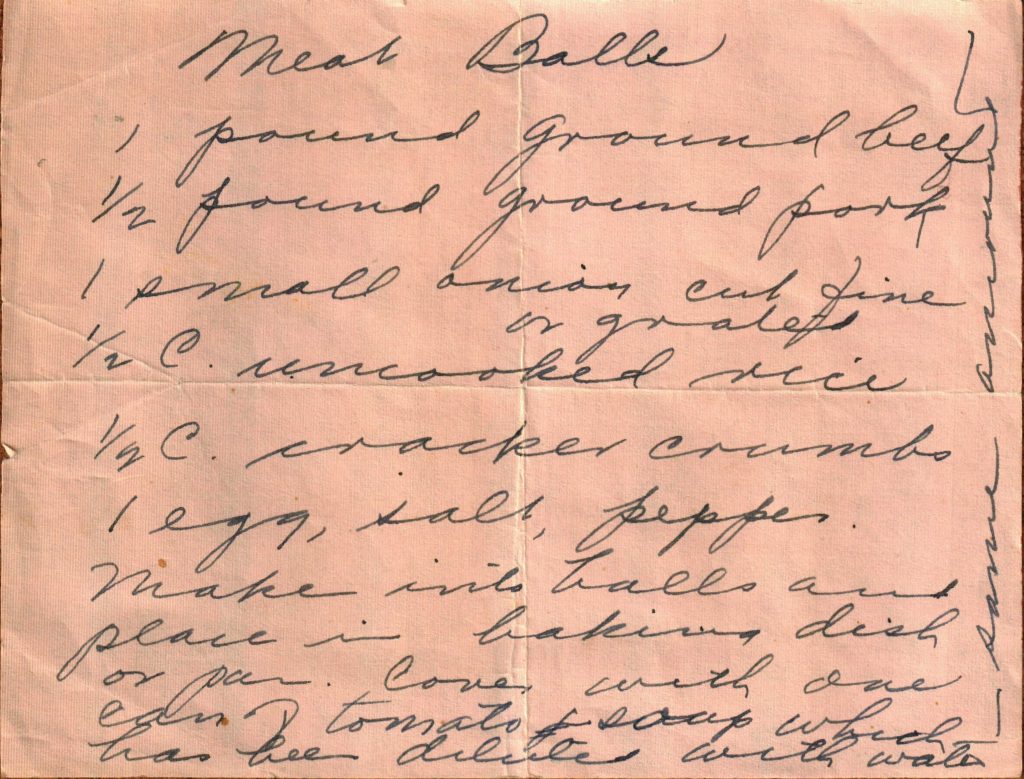 Meat Balls
1 pound ground beef
1/2 pound ground pork
1 small onion cut fine
or grated
1/2 C. uncooked rice
1/2 C. cracker crumbs
1 egg, salt, pepper.
Make into balls and
place in baking dish
or pan. Cover with one
can of tomato soup which
has been diluted with water
same amount